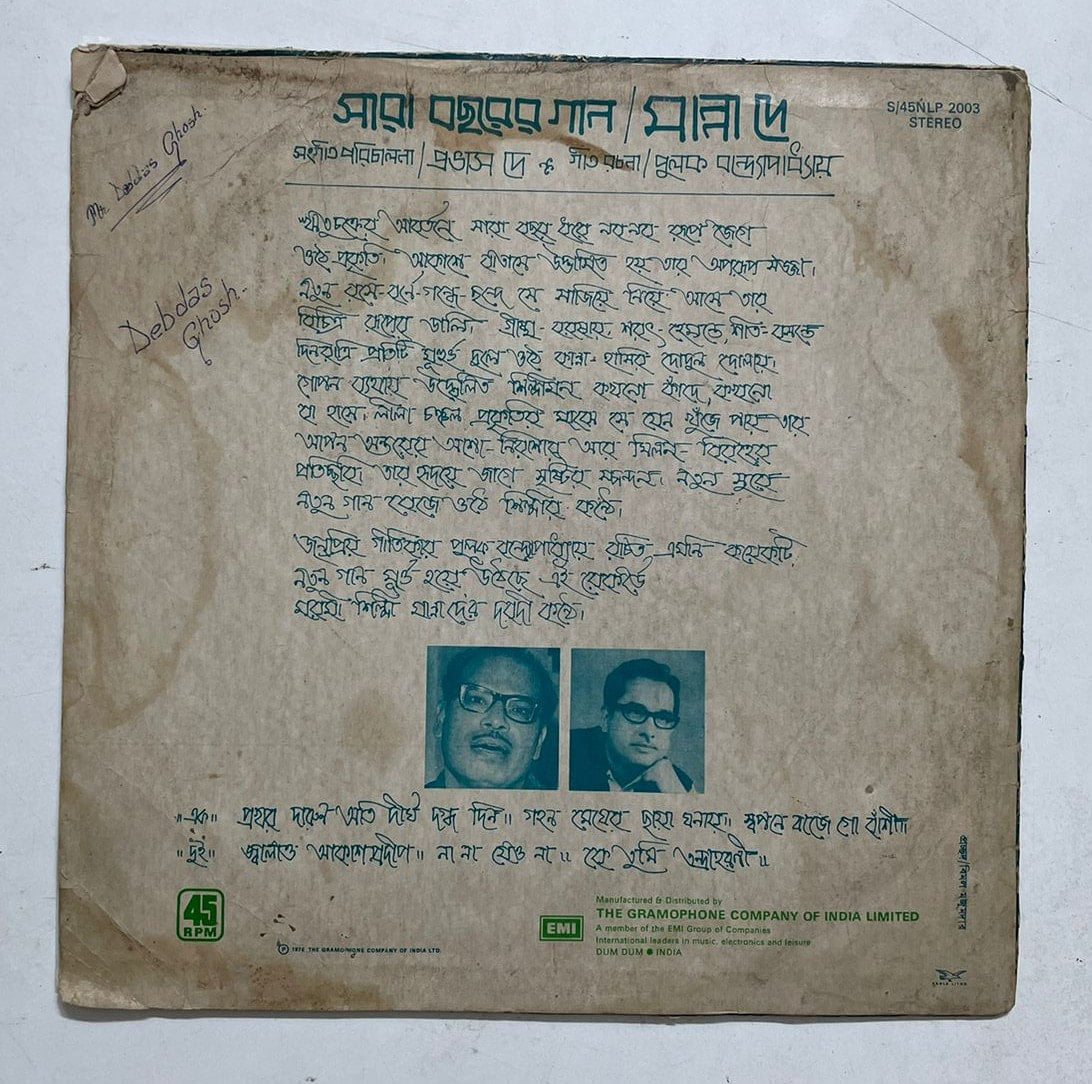 সারা বছরের গান / মান্না দে
S/45NLP 2003
STEREO
সংগীত পরিচালনা / প্রভাস দে ও গীত রচনা / পুলক বন্দ্যোপাধ্যায়
Mr. Debdas Ghosh.
Debdas
Ghosh.
ঋতুচক্রের আবর্তনে সারা বছর ধরে নব নব রূপে জেগে
ওঠে প্রকৃতি। আকাশে বাতাসে উদ্ভাসিত হয় তার অপরূপ সজ্জা।
নতুন রসে-বর্ণে-গন্ধে ছন্দে সে সাজিয়ে নিয়ে আসে তার
বিচিত্র রূপের ডালি। গ্রীষ্ম-বরষায়, শরৎ-হেমন্তে, শীত-বসন্তে
দিনরাত্রি প্রতিটি মুহূর্ত দুলে ওঠে কান্না-হাসির দোদুল দোলায়।
গোপন ব্যথায় উদ্বেলিত শিল্পীমন কখনো কাঁদে, কখনো
বা হাসে। লীলা চঞ্চল প্রকৃতির মাঝে সে যেন খুঁজে পায় তার
আপন অন্তরের আশা-নিরাশার আর মিলন-বিরহের
প্রতিচ্ছবি। তার হৃদয়ে জাগে সৃষ্টির স্পন্দন। নতুন সুরে
নতুন গান বেজে ওঠে শিল্পীর কন্ঠে।
জনপ্রিয় গীতিকার পুলক বন্দ্যোপাধ্যায় রচিত এমনি কয়েকটি
নতুন গান মূর্ত হয়ে উঠেছে এই রেকর্ডে
মরমী শিল্পী মান্না দে'র দরদী কন্ঠে।
॥এক॥ প্রখর দারুন অতি দীর্ঘ দগ্ধ দিন॥ গহন মেঘের ছায়া ঘনায়॥ স্বপনে বাজে গো বাঁশী॥
॥দুই॥ জ্বালাও আকাশ প্রদীপ॥ না না যেও না॥ কে তুমি তন্দ্রাহরণী॥
45
RPM
Ⓟ 1976 THE GRAMOPHONE COMPANY OF INDIA LTD.
EMI
Manufactured & Distributed by
THE GRAMOPHONE COMPANY OF INDIA LIMITED
A member of the EMI Group of Companies
International leaders in music, electronics and leisure
DUM DUM ● INDIA
EAGLE LITHO